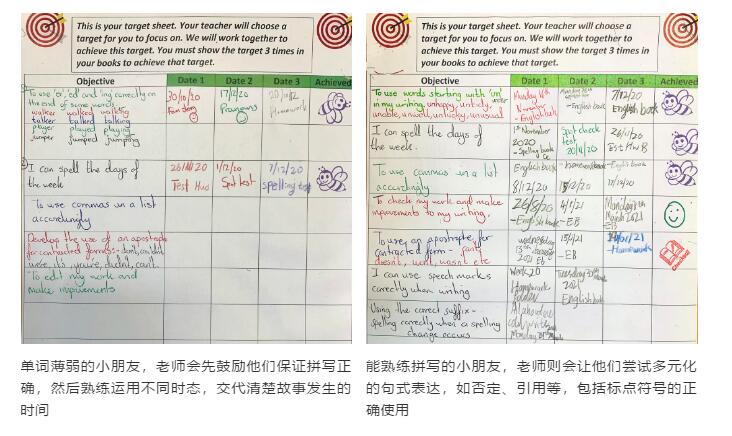 This is your target sheet. Your teacher will choose a
target for you to focus on. We will work together to
achieve this target. You must show the target 3 times in
your books to achieve that target.
Objective Date 1 Date 2 Date 3 Achieved
To use 'er', 'ed' and 'ing' correctly on
the end of some words
walker walked walking
talker talked talking
player played playing
jumper jumped jumping
30/10/20
17/12/20
Pronouns
Homework
I can spell the days of
the week
Test Hwb
1/12/20
Spot test
7/12/20
spelling test
To use commas in a list
accordingly
Develop the use of an apostrophe
for contracted forms:- don't, couldn't
weren't, it's, you're, didn't, can't.
To edit my work and
make improvements
This is your target sheet. Your teacher will choose a
target for you to focus on. We will work together to
achieve this target. You must show the target 3 times in
your books to achieve that target.
Objective Date 1 Date 2 Date 3 Achieved
To use words starting with 'un'
in my writing, unhappy, untidy,
unable, unwell, unlucky, unusual
- English book
- English book
7/12/20
English book
I can spell the days of
the week.
November
2020
- Spelling book
Spot check
test
20/11/20
26/11/20
To use commas in a list
accordingly
English book
8/12/20
To check my work and make
improvements to my writing.
- English book
4/1/21
- EB
March 2021
EB
To use an apostrophe for
contracted form - can't
doesn't, won't, wasn't etc
wednesday
13th
2021 Eb
- EB
- Homework
I can use speech marks
correctly when writing
Homework
folder
Tuesday
2021
English book
Using the correct suffix -
spelling correctly when a spelling
change occurs
Monday
单词薄弱的小朋友，老师会先鼓励他们保证拼写正
确，然后熟练运用不同时态，交代清楚故事发生的
时间
能熟练拼写的小朋友，老师则会让他们尝试多元化
的句式表达，如否定、引用等，包括标点符号的正
确使用